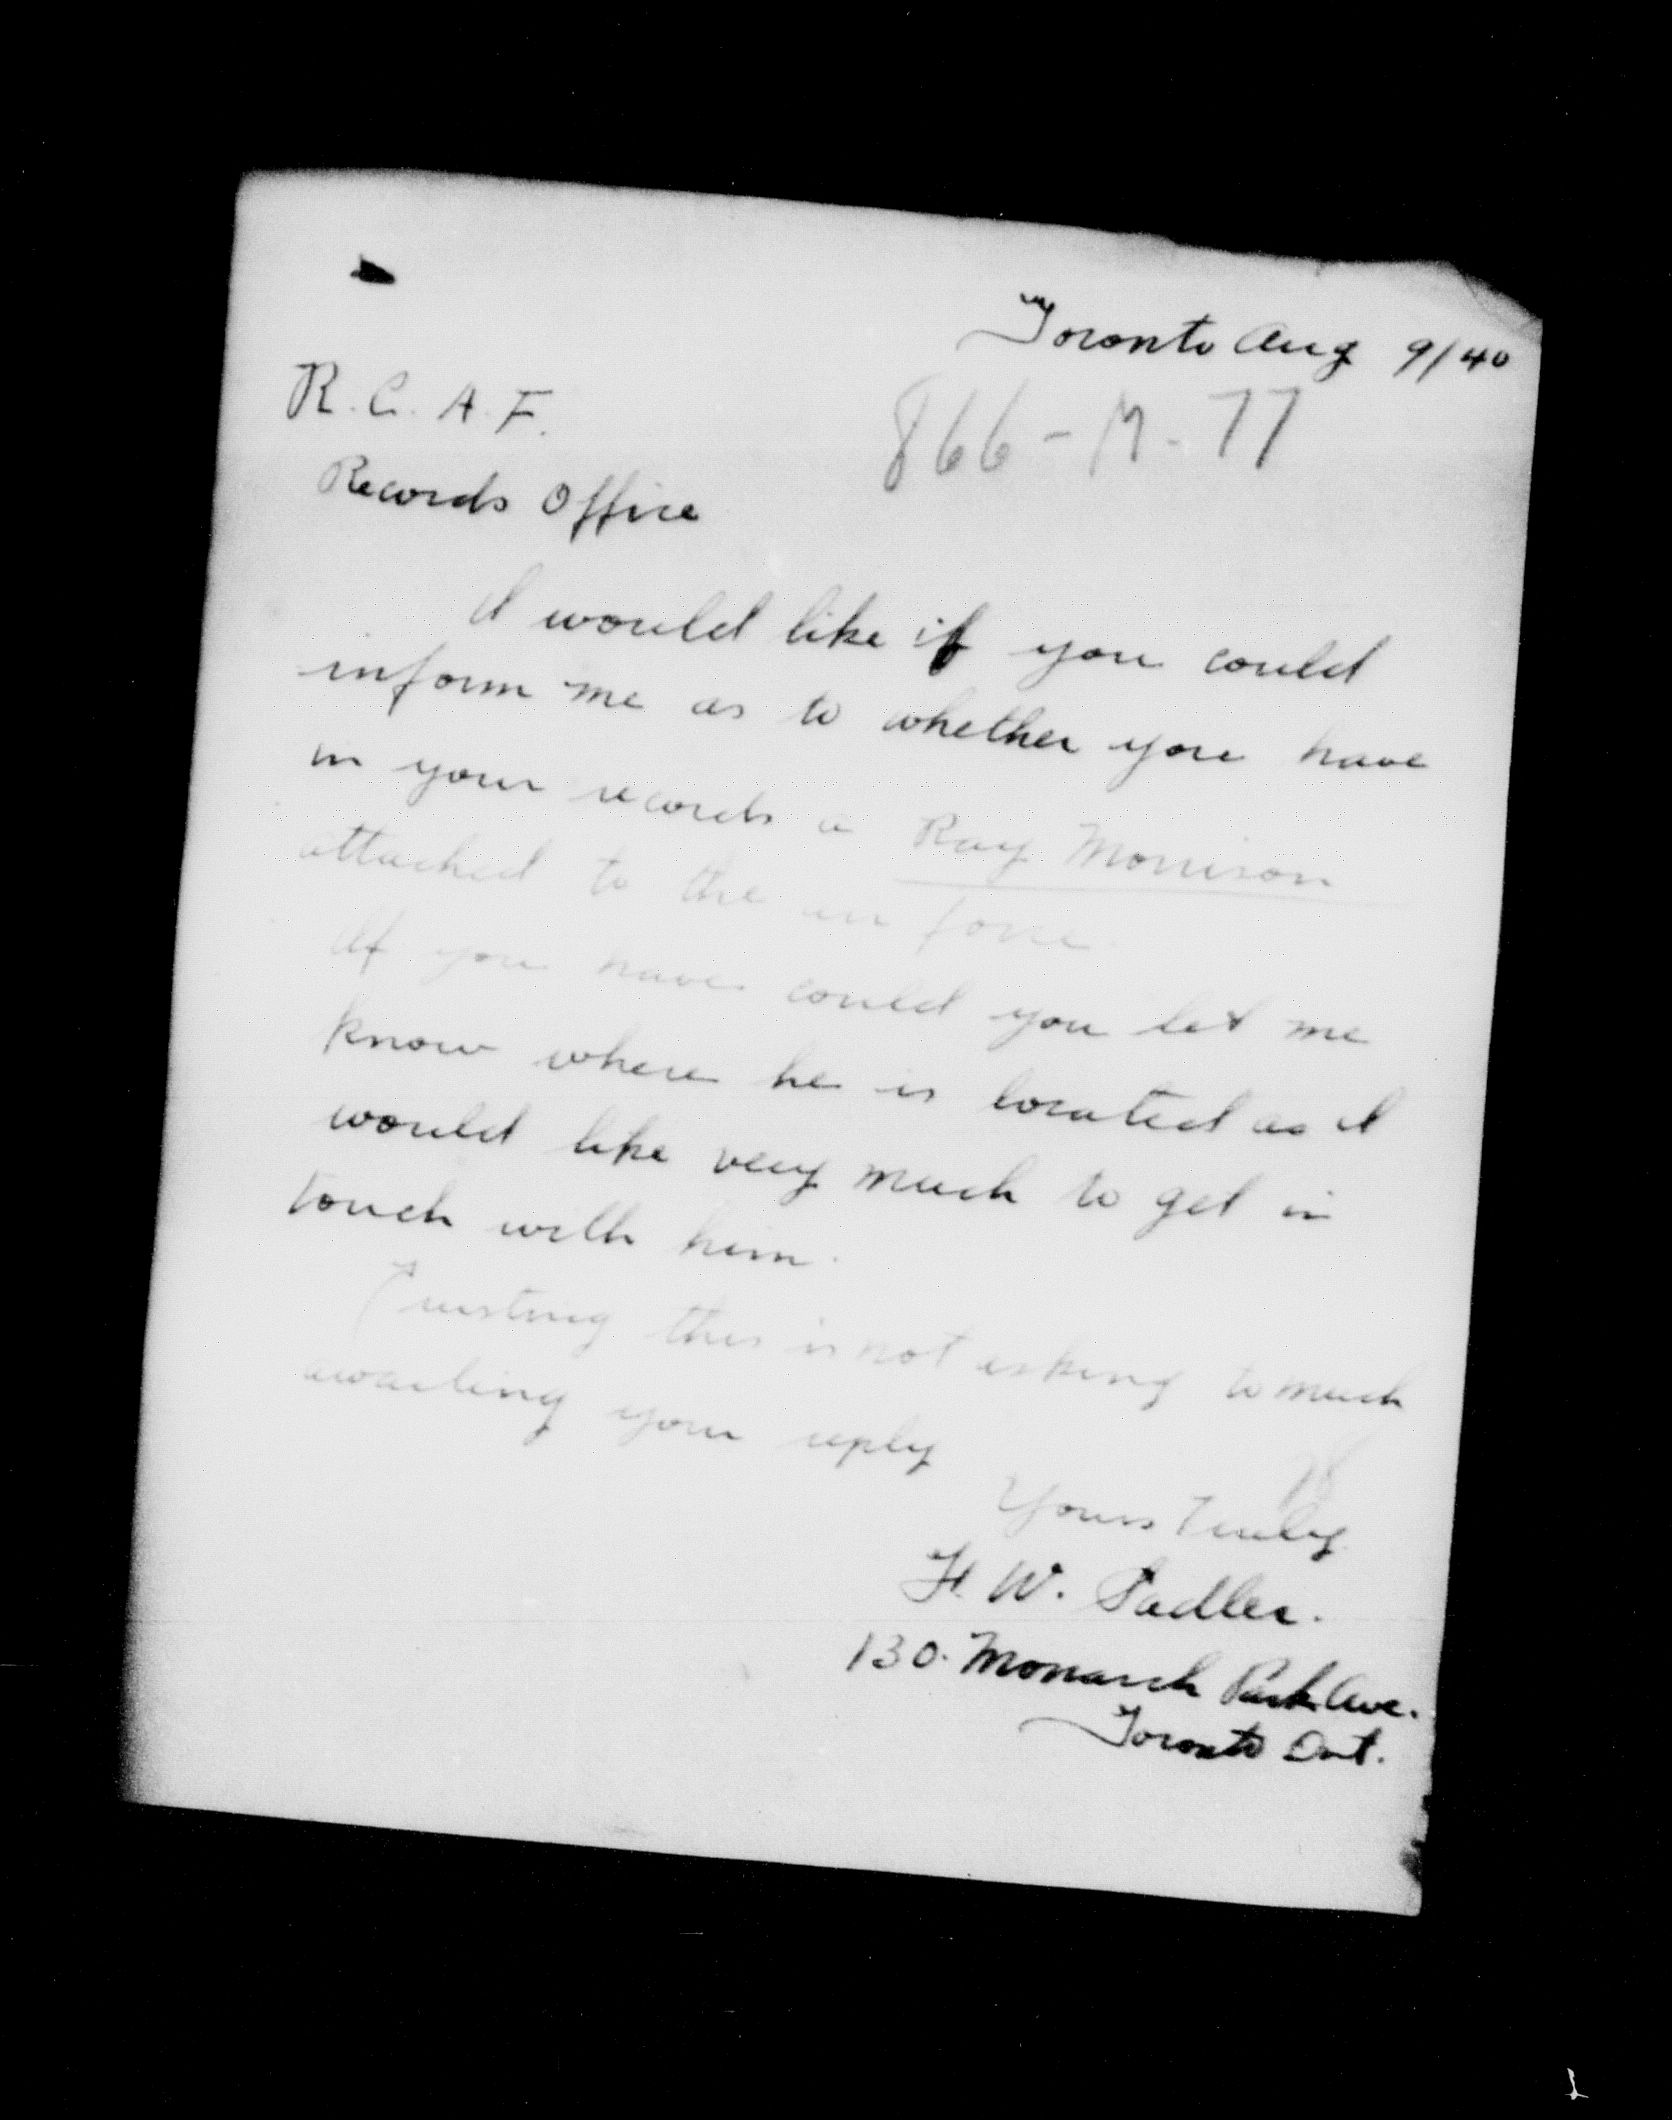 Toronto Aug 9/40
866-M-77
R. C. A. F.
Records Office
I would like if you could
inform me as to whether you have
in your records a Ray Morrison
attached to the air force.
If you have could you let me
know where he is located as I
would like very much to get in
touch with him.
Trusting this is not asking to much
awaiting your reply
Yours Truly
H. W. Sadler.
130. Monarch Park Ave.
Toronto Ont.